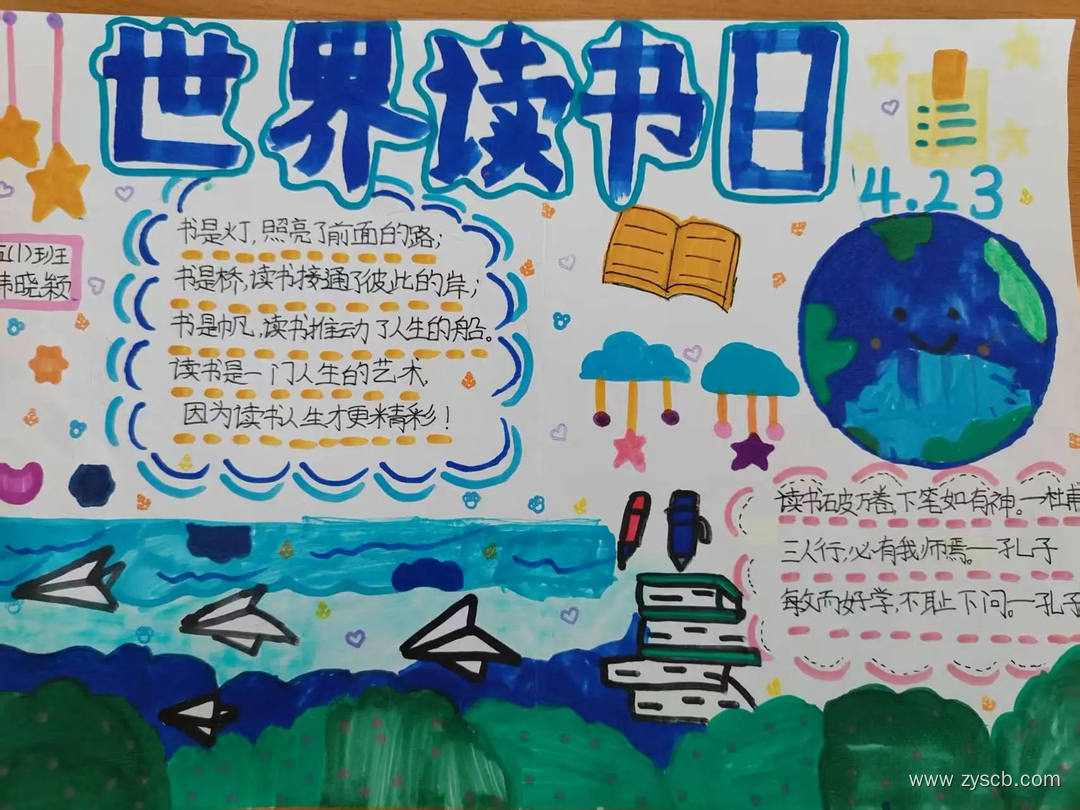 世界读书日
4.23
五(1)班
韩晓颖
书是灯,照亮了前面的路;
书是桥,读书接通了彼此的岸;
书是帆,读书推动了人生的船。
读书是一门人生的艺术,
因为读书人生才更精彩!
读书破万卷,下笔如有神。—杜甫
三人行,必有我师焉。—孔子
敏而好学,不耻下问。—孔子
www.zyscb.com